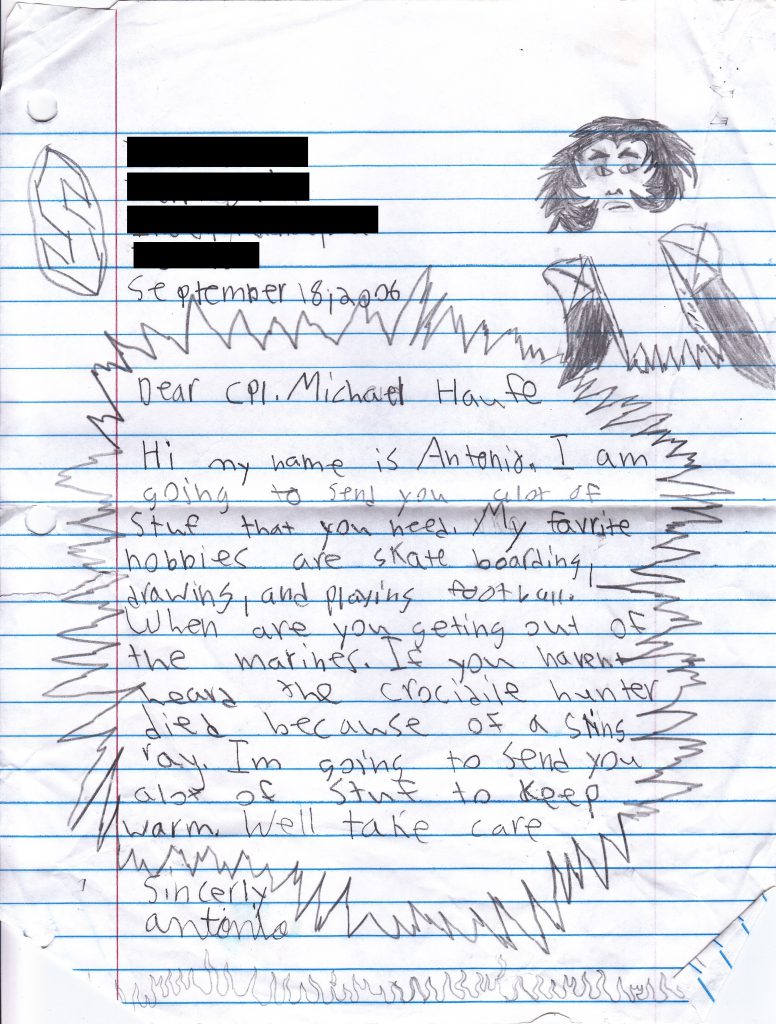 September 18, 2006
Dear Cpl. Michael Haufe
Hi my name is Antonio. I am
going to send you alot of
Stuf that you need. My favrite
hobbies are skate boarding,
drawing, and playing football.
When are you geting out of
the marines. If you havent
heard the crocidile hunter
died because of a sting
ray. Im going to send you
alot of Stuf to keep
warm. Well take care
Sincerly
antonio